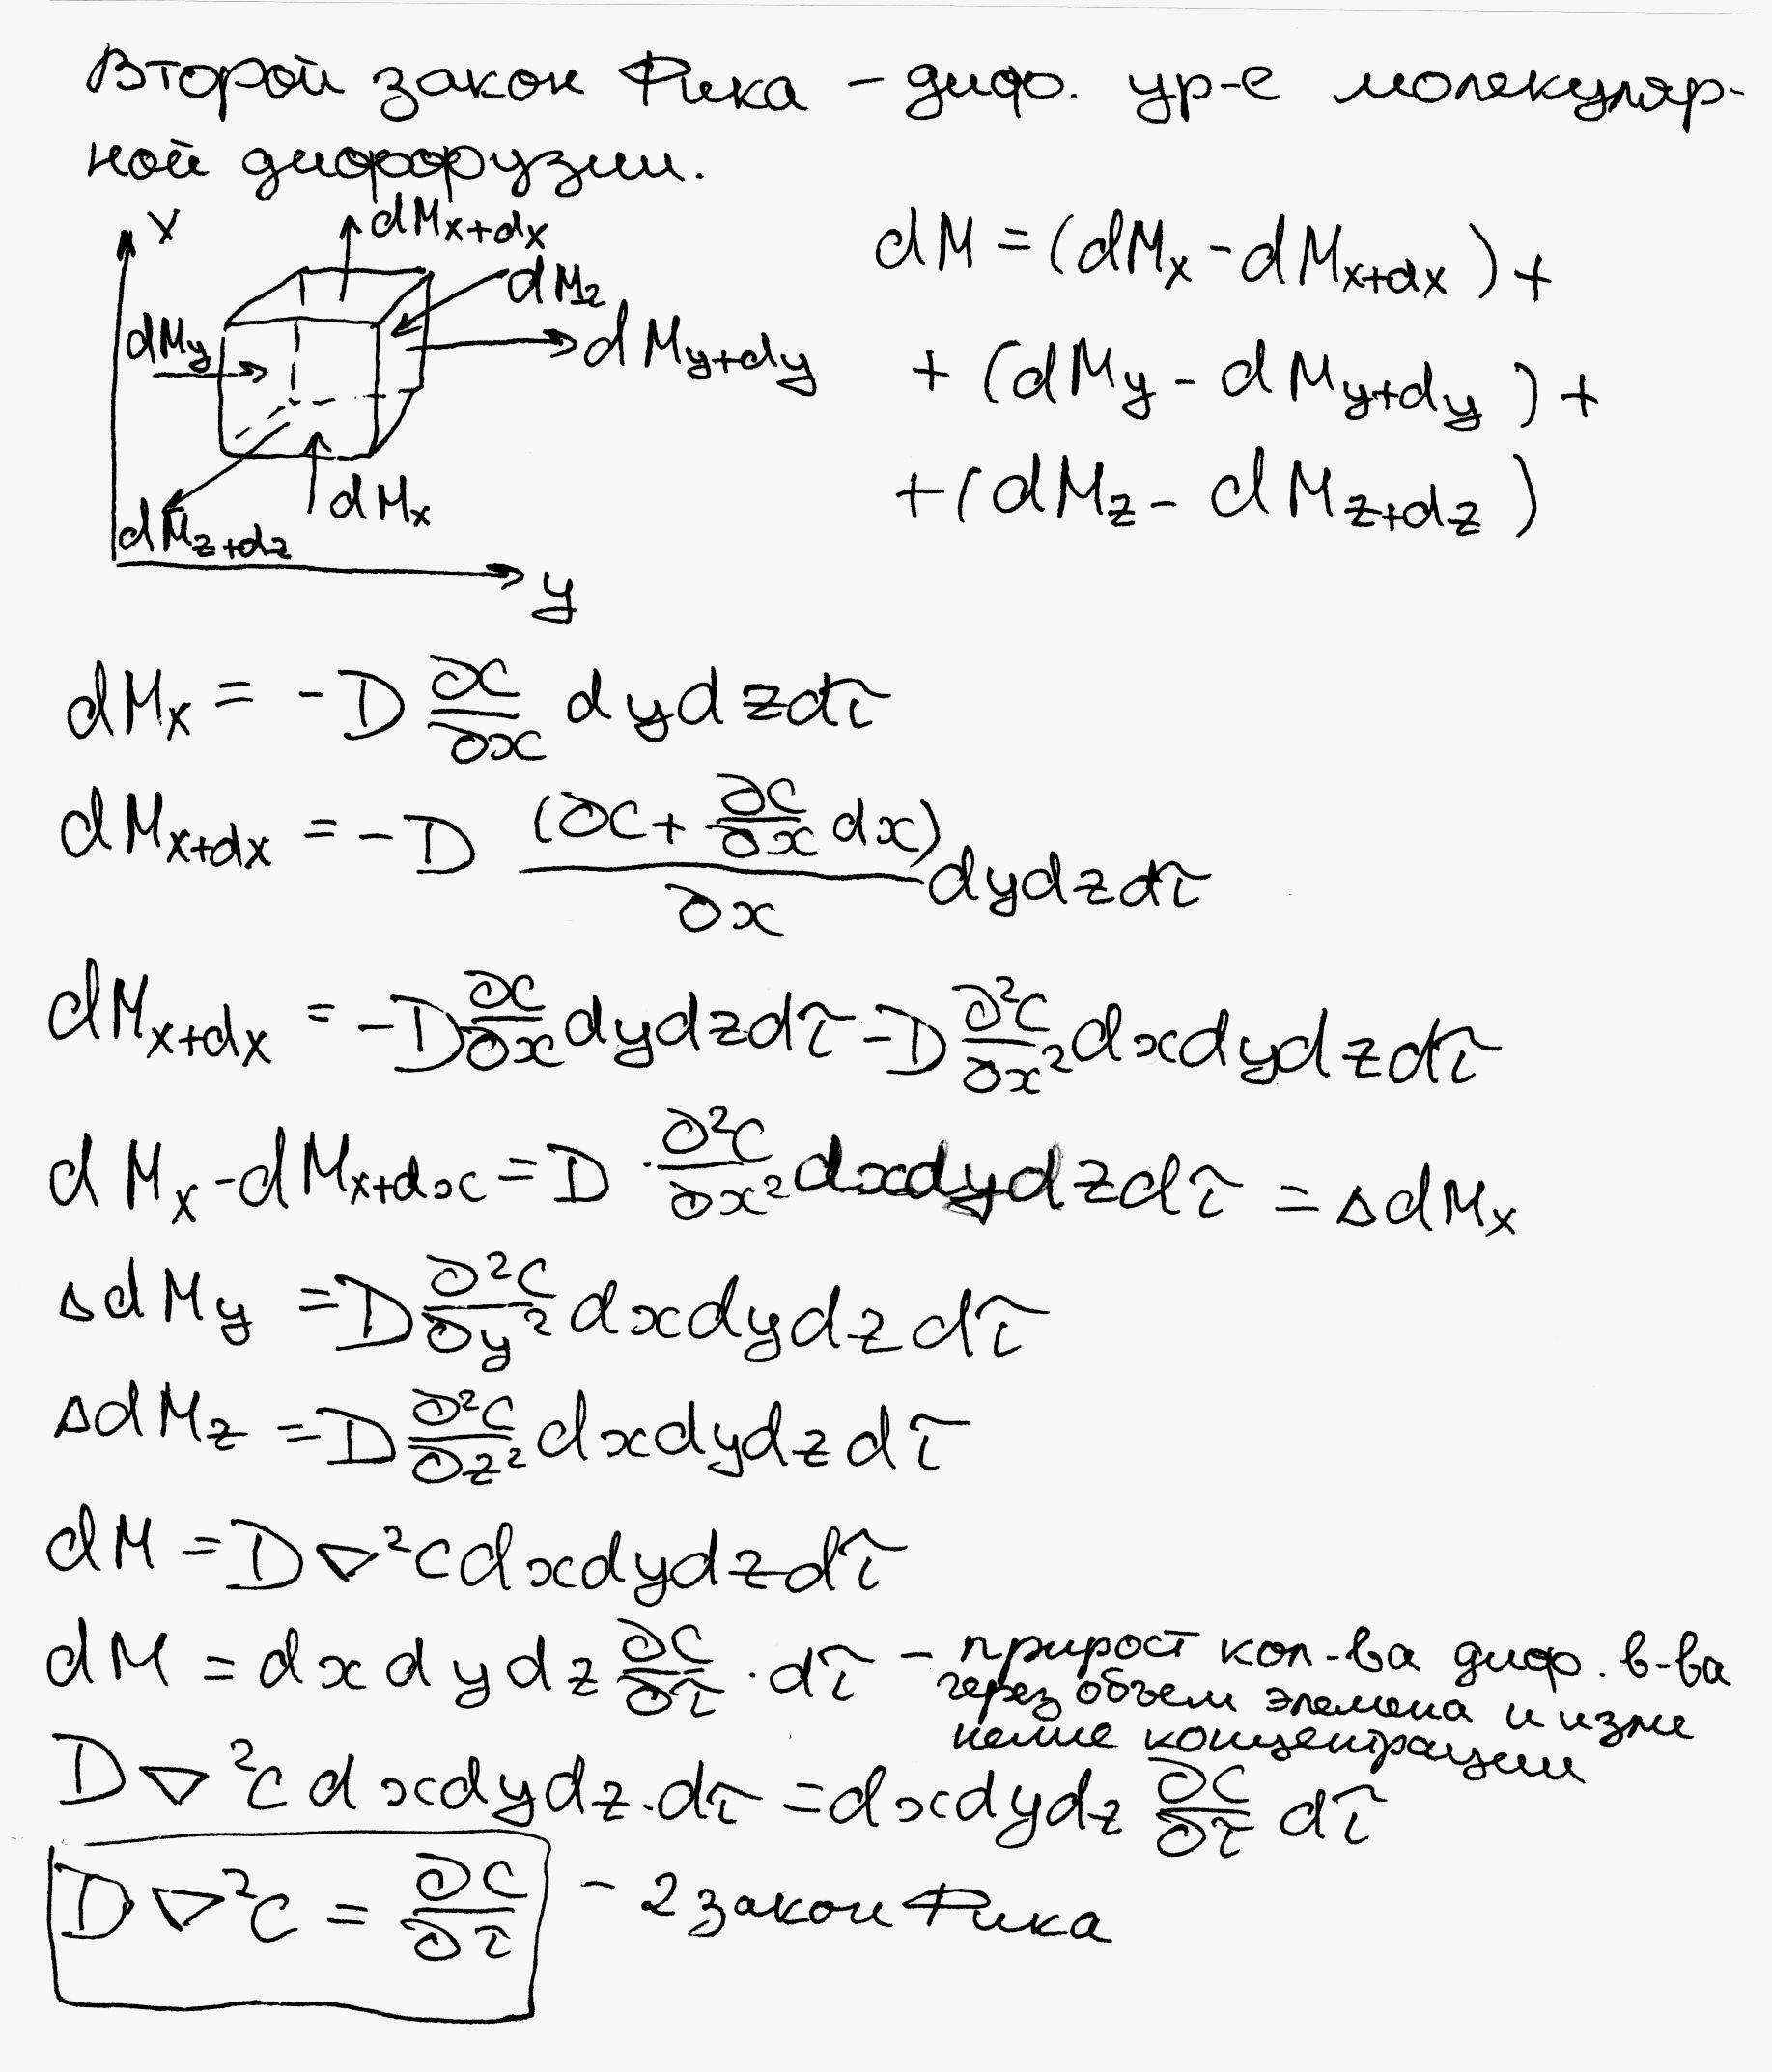 Второй закон Фика – дифф. ур-е молекуляр-
ной диффузии.
x
dM_{x+dx}
dM_z
dM_y
dM_{y+dy}
dM_x
dM_{z+dz}
y
dM = (dM_x - dM_{x+dx}) +
+ (dM_y - dM_{y+dy}) +
+ (dM_z - dM_{z+dz})
dM_x = -D ∂C/∂x dydzdτ
dM_{x+dx} = -D (∂C + ∂C/∂x dx)/∂x dydzdτ
dM_{x+dx} = -D ∂C/∂x dydzdτ - D ∂²C/∂x² dxdydzdτ
dM_x - dM_{x+dx} = D · ∂²C/∂x² dxdydzdτ = ΔdM_x
ΔdM_y = D ∂²C/∂y² dxdydzdτ
ΔdM_z = D ∂²C/∂z² dxdydzdτ
dM = D∇²C dxdydzdτ
dM = dxdydz ∂C/∂τ · dτ – прирост кол-ва диф. в-ва
через объем элемена и изме
нение концентрации
D∇²C dxdydz·dτ = dxdydz ∂C/∂τ dτ
D∇²C = ∂C/∂τ – 2 закон Фика